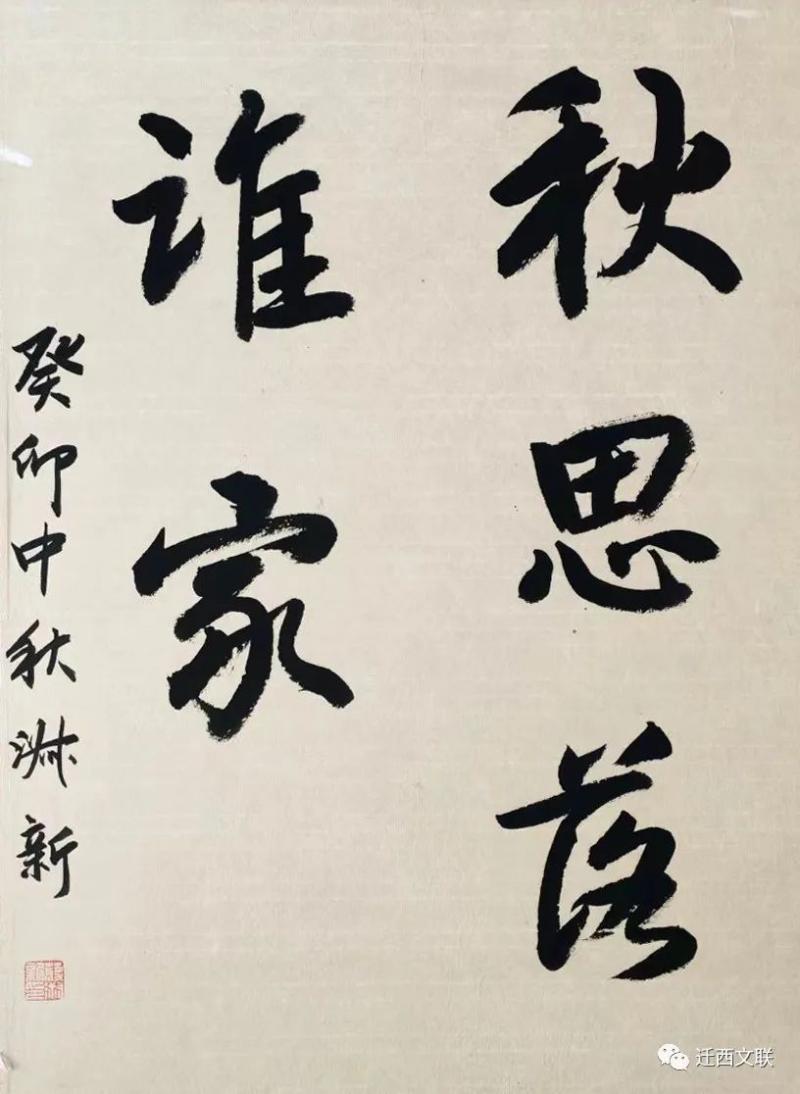 秋思落
谁家
癸卯中秋淑新
迁西文联